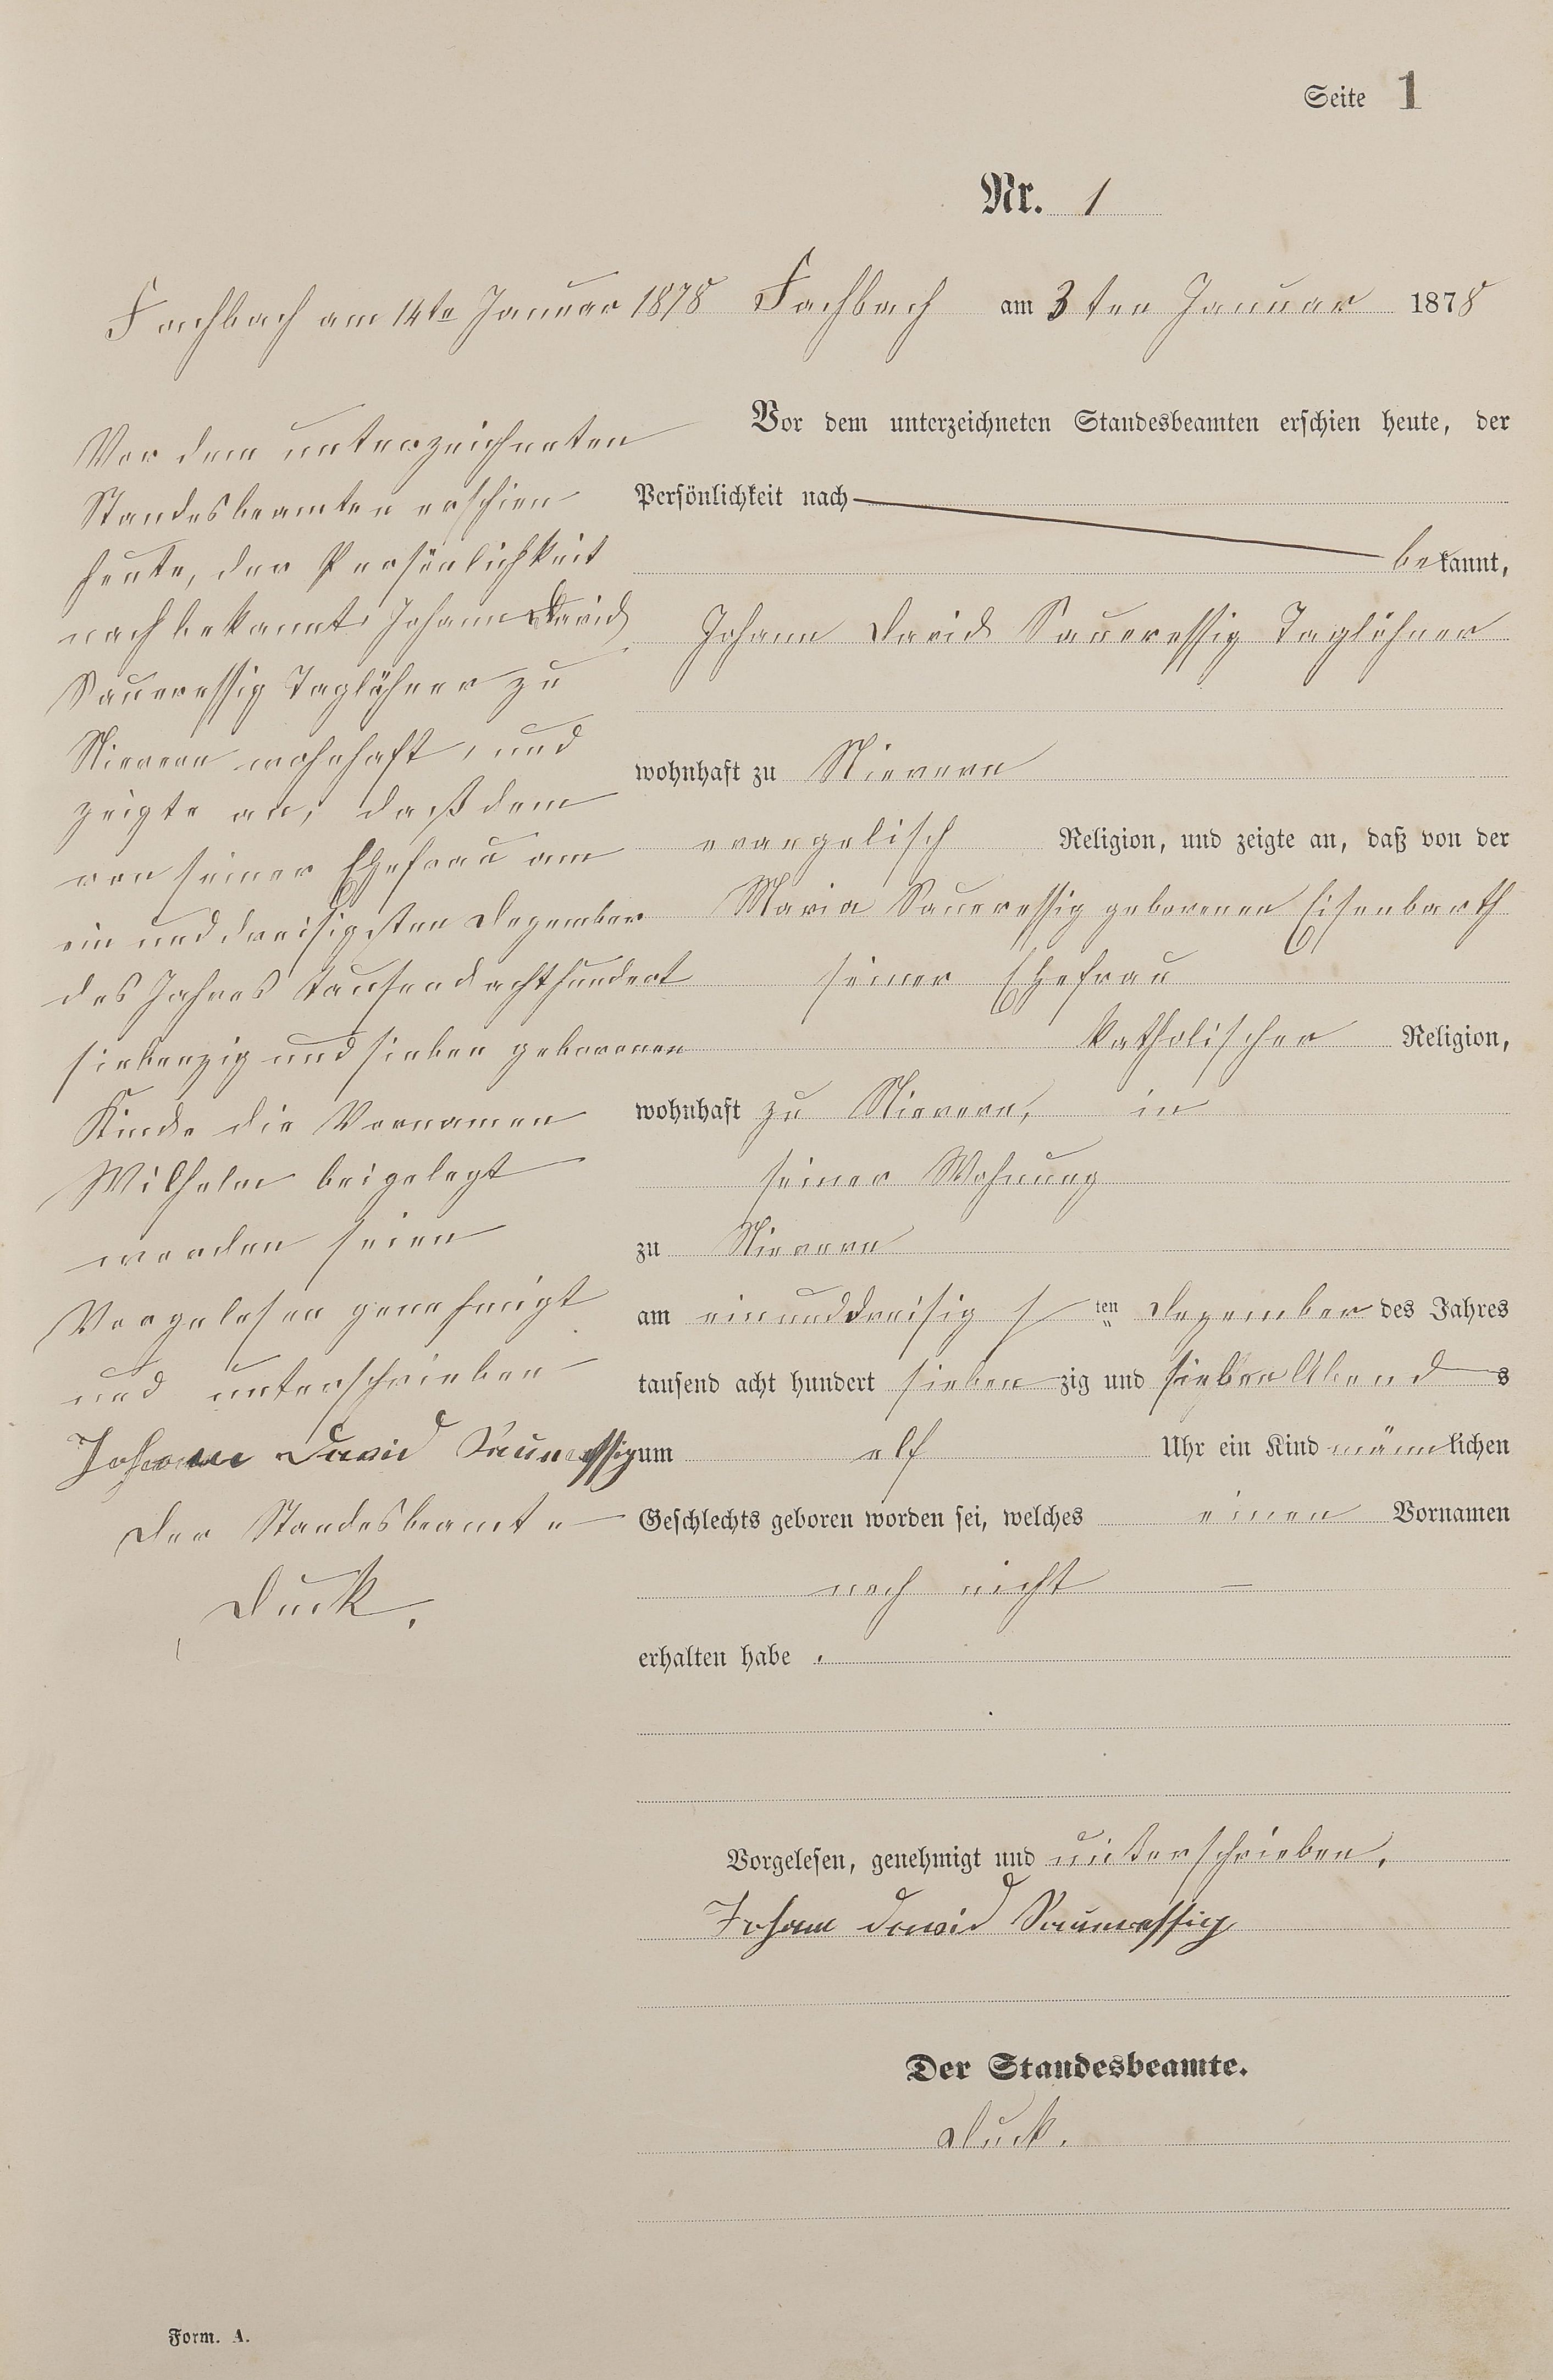 Seite 1
Nr. 1
Fachbach am 14te Januar 1878
Vor dem unterzeichneten
Standesbeamten erschien
heute, der Persönlichkeit
nach bekannt Johann David
Saueressig Taglöhner zu
Nievern wohnhaft, und
zeigte an, daß dem
von seiner Ehefrau am
ein und dreisigsten Dezember
des Jahres tausend achthundert
siebenzig und sieben geborenen
Kinde die Vornamen
Wilhelm beigelegt
worden seien
Vorgelesen genehmigt
und unterschrieben
Johann David Saueressig
Der Standesbeamte
Duck.
Fachbach am 3ten Januar 1878
Vor dem unterzeichneten Standesbeamten erschien heute, der
Persönlichkeit nach
bekannt,
Johann David Saueressig Taglöhner
wohnhaft zu Nievern
evangelisch Religion, und zeigte an, daß von der
Maria Saueressig geborenen Eisenbarth
seiner Ehefrau
katholischer Religion,
wohnhaft zu Nievern, in
seiner Wohnung
zu Nievern
am einunddreisig sten Dezember des Jahres
tausend acht hundert sieben zig und sieben Abends
um elf Uhr ein Kind männlichen
Geschlechts geboren worden sei, welches einen Vornamen
noch nicht —
erhalten habe .
Vorgelesen, genehmigt und unterschrieben.
Johann David Saueressig
Der Standesbeamte.
Duck.
Form. A.